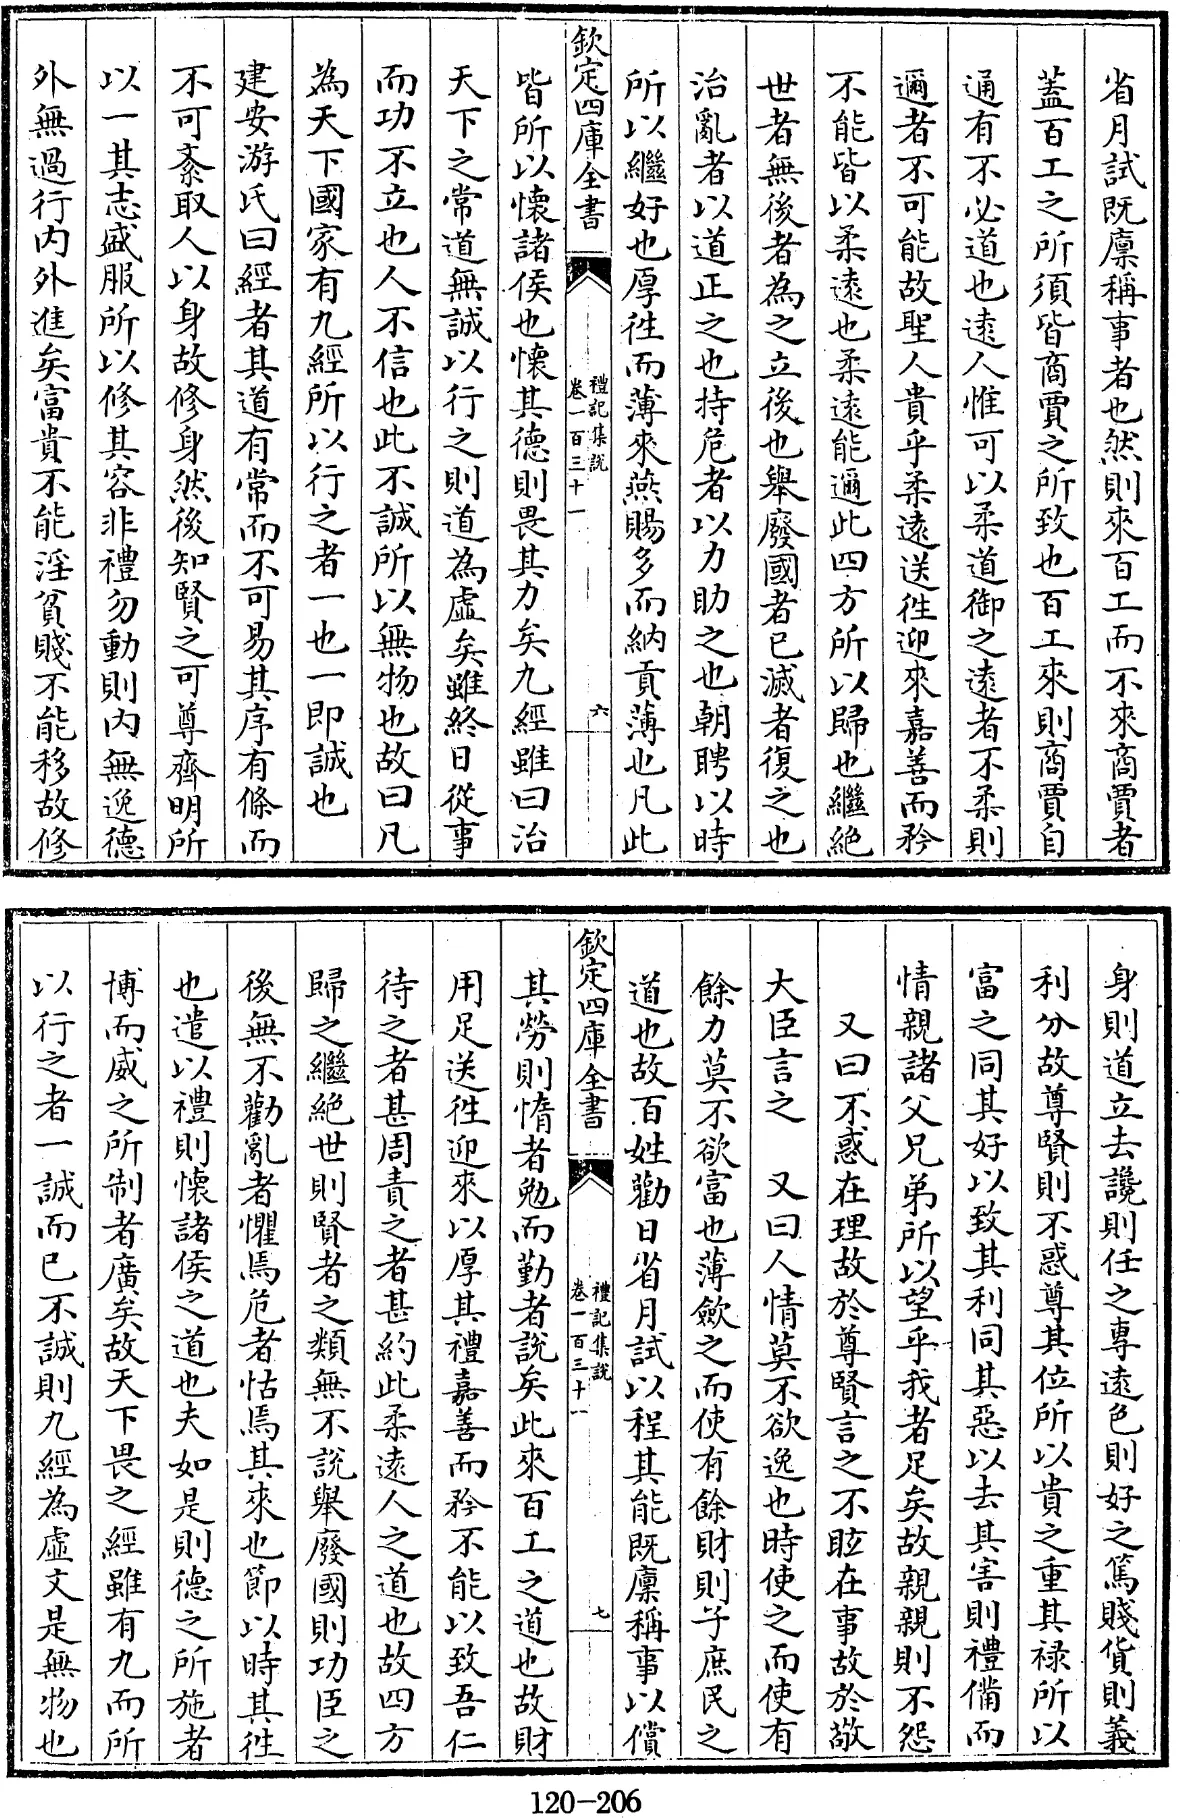 省月試既廪稱事者也然則來百工而不來商賈者
蓋百工之所須皆商賈之所致也百工來則商賈自
通有不必道也逺人惟可以柔道御之逺者不柔則
邇者不可能故聖人貴乎柔逺送徃迎來嘉善而矜
不能皆以柔逺也柔逺能邇此四方所以歸也繼絶
世者無後者為之立後也舉廢國者已滅者復之也
治亂者以道正之也持危者以力助之也朝聘以時
所以繼好也厚徃而薄來燕賜多而納貢薄也凡此
欽定四庫全書
禮記集說
卷一百三十一
六
皆所以懷諸侯也懷其德則畏其力矣九經雖曰治
天下之常道無誠以行之則道為虚矣雖終日從事
而功不立也人不信也此不誠所以無物也故曰凡
為天下國家有九經所以行之者一也一即誠也
建安游氏曰經者其道有常而不可易其序有條而
不可紊取人以身故修身然後知賢之可尊齊明所
以一其志盛服所以修其容非禮勿動則内無逸德
外無過行内外進矣富貴不能淫貧賤不能移故修
身則道立去讒則任之專逺色則好之篤賤貨則義
利分故尊賢則不惑尊其位所以貴之重其禄所以
富之同其好以致其利同其惡以去其害則禮備而
情親諸父兄弟所以望乎我者足矣故親親則不怨
又曰不惑在理故於尊賢言之不眩在事故於敬
大臣言之　又曰人情莫不欲逸也時使之而使有
餘力莫不欲富也薄斂之而使有餘財則子庶民之
道也故百姓勸日省月試以程其能既廪稱事以償
欽定四庫全書
禮記集說
卷一百三十一
七
其勞則惰者勉而勤者說矣此來百工之道也故財
用足送徃迎來以厚其禮嘉善而矜不能以致吾仁
待之者甚周責之者甚約此柔逺人之道也故四方
歸之繼絶世則賢者之類無不說舉廢國則功臣之
後無不勸亂者懼焉危者怙焉其來也節以時其徃
也遣以禮則懷諸侯之道也夫如是則德之所施者
博而威之所制者廣矣故天下畏之經雖有九而所
以行之者一誠而已不誠則九經為虚文是無物也
120-206